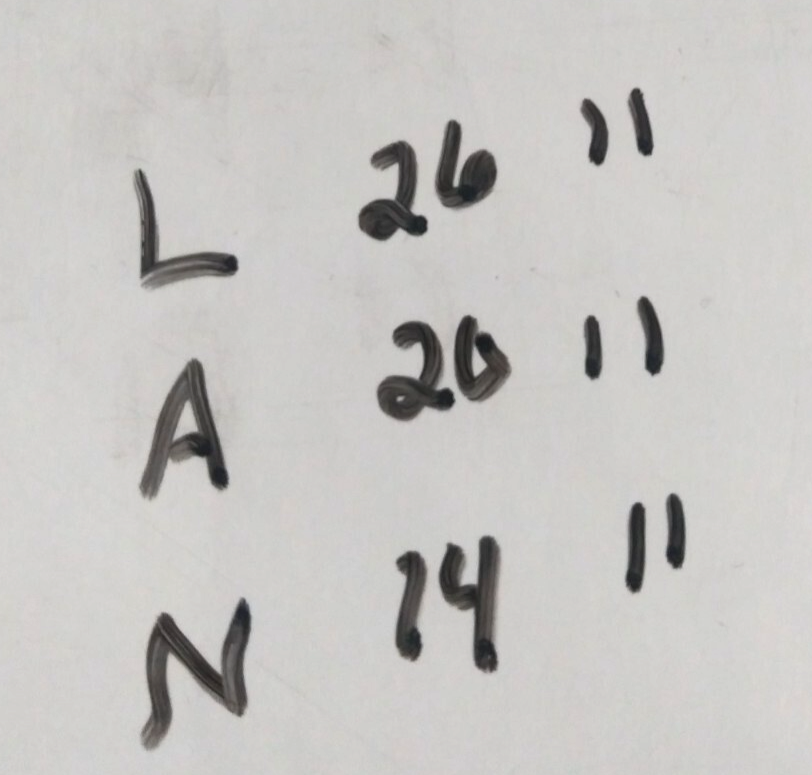 L 26 "
A 20 "
N 14 "